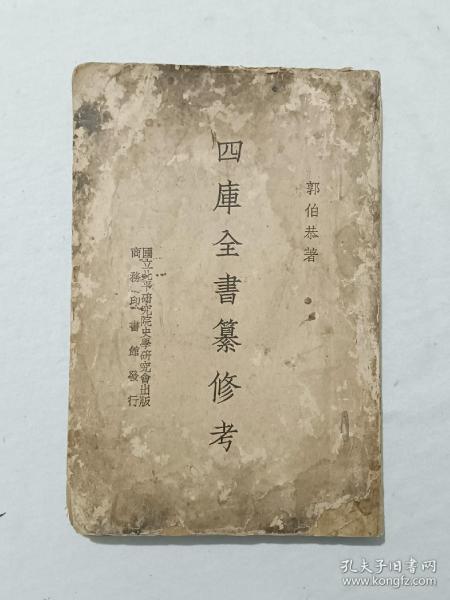 郭伯恭著
四庫全書纂修考
國立北平研究院史學研究會出版
商務印書館發行
孔夫子旧书网
www.kongfz.com